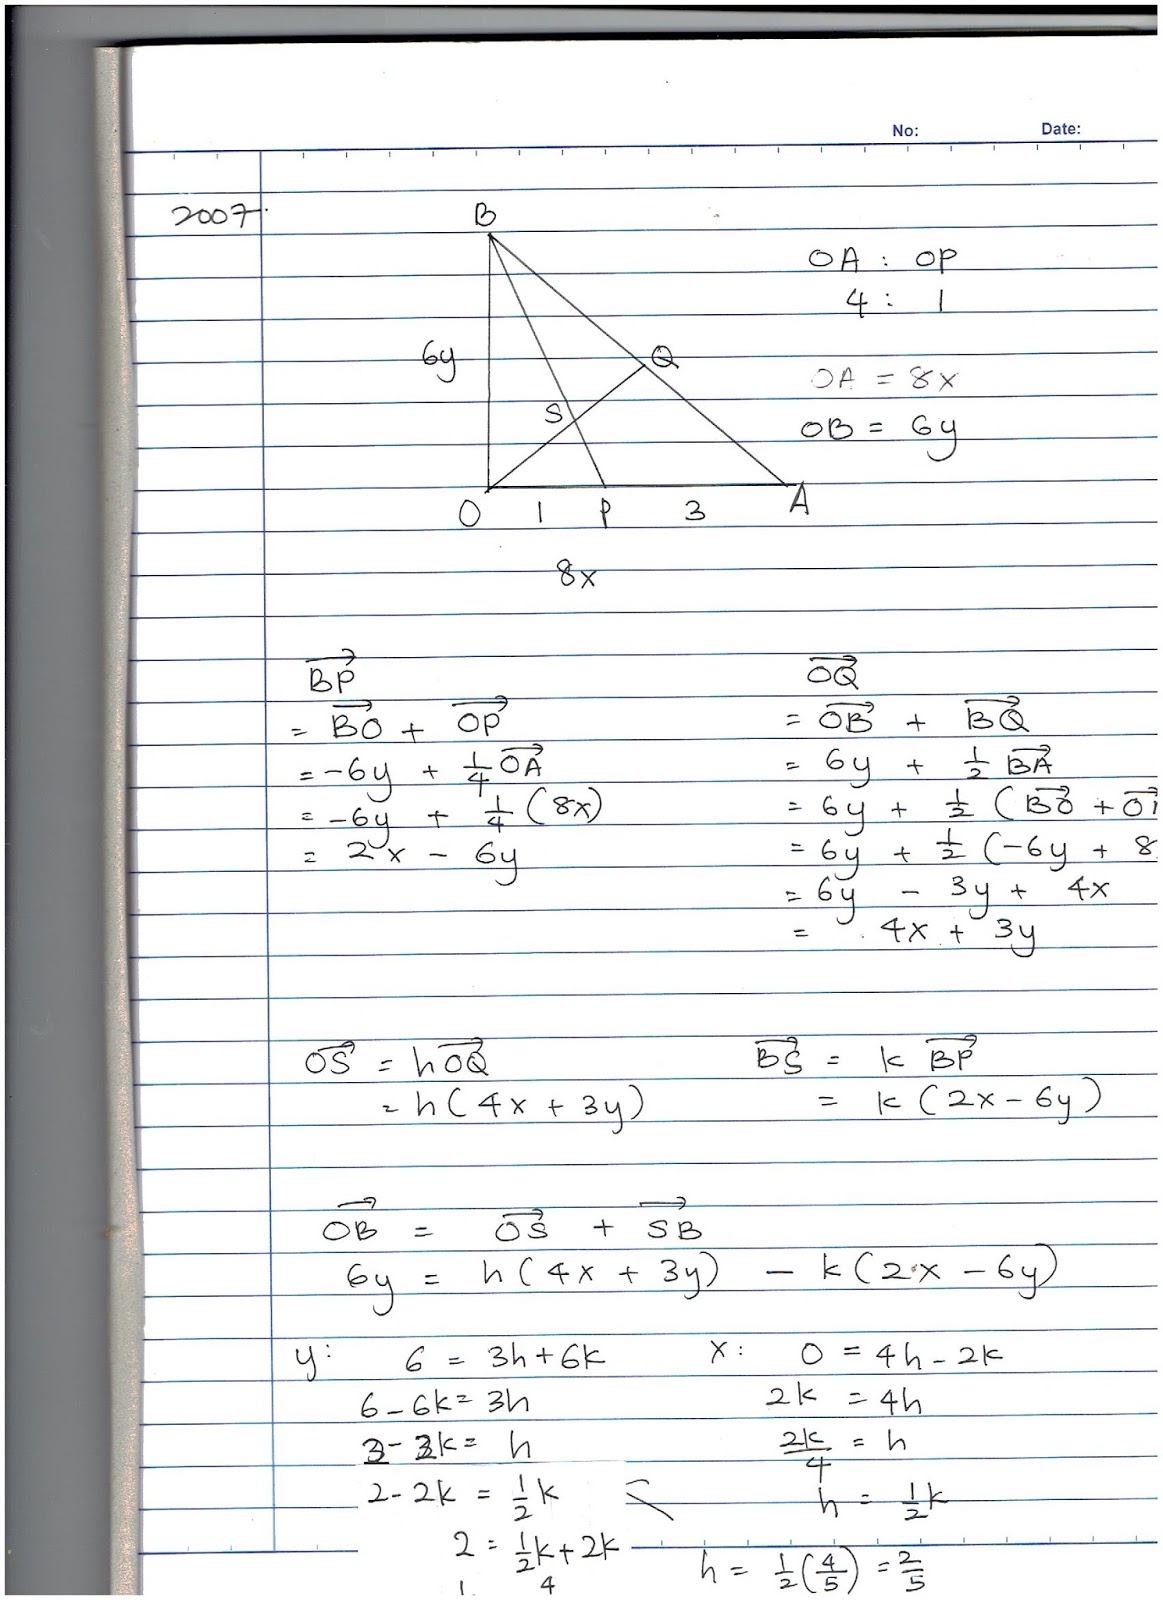 No: Date:
2007.
B
OA : OP
4 : 1
6y
Q
OA = 8x
S
OB = 6y
O 1 P 3 A
8x
BP
= BO + OP
= -6y + 1/4 OA
= -6y + 1/4 (8x)
= 2x - 6y
OQ
= OB + BQ
= 6y + 1/2 BA
= 6y + 1/2 (BO +
= 6y + 1/2 (-6y + 8
= 6y - 3y + 4x
= 4x + 3y
OS = hOQ
= h(4x + 3y)
BS = k BP
= k (2x - 6y)
OB = OS + SB
6y = h(4x + 3y) - k(2x - 6y)
y: 6 = 3h + 6k
6 - 6k = 3h
- k = h
2 - 2k = 1/2 k
2 = 1/2 k + 2k
4
x: 0 = 4h - 2k
2k = 4h
2k/4 = h
h = 1/2 k
h = 1/2 (4/5) = 2/5